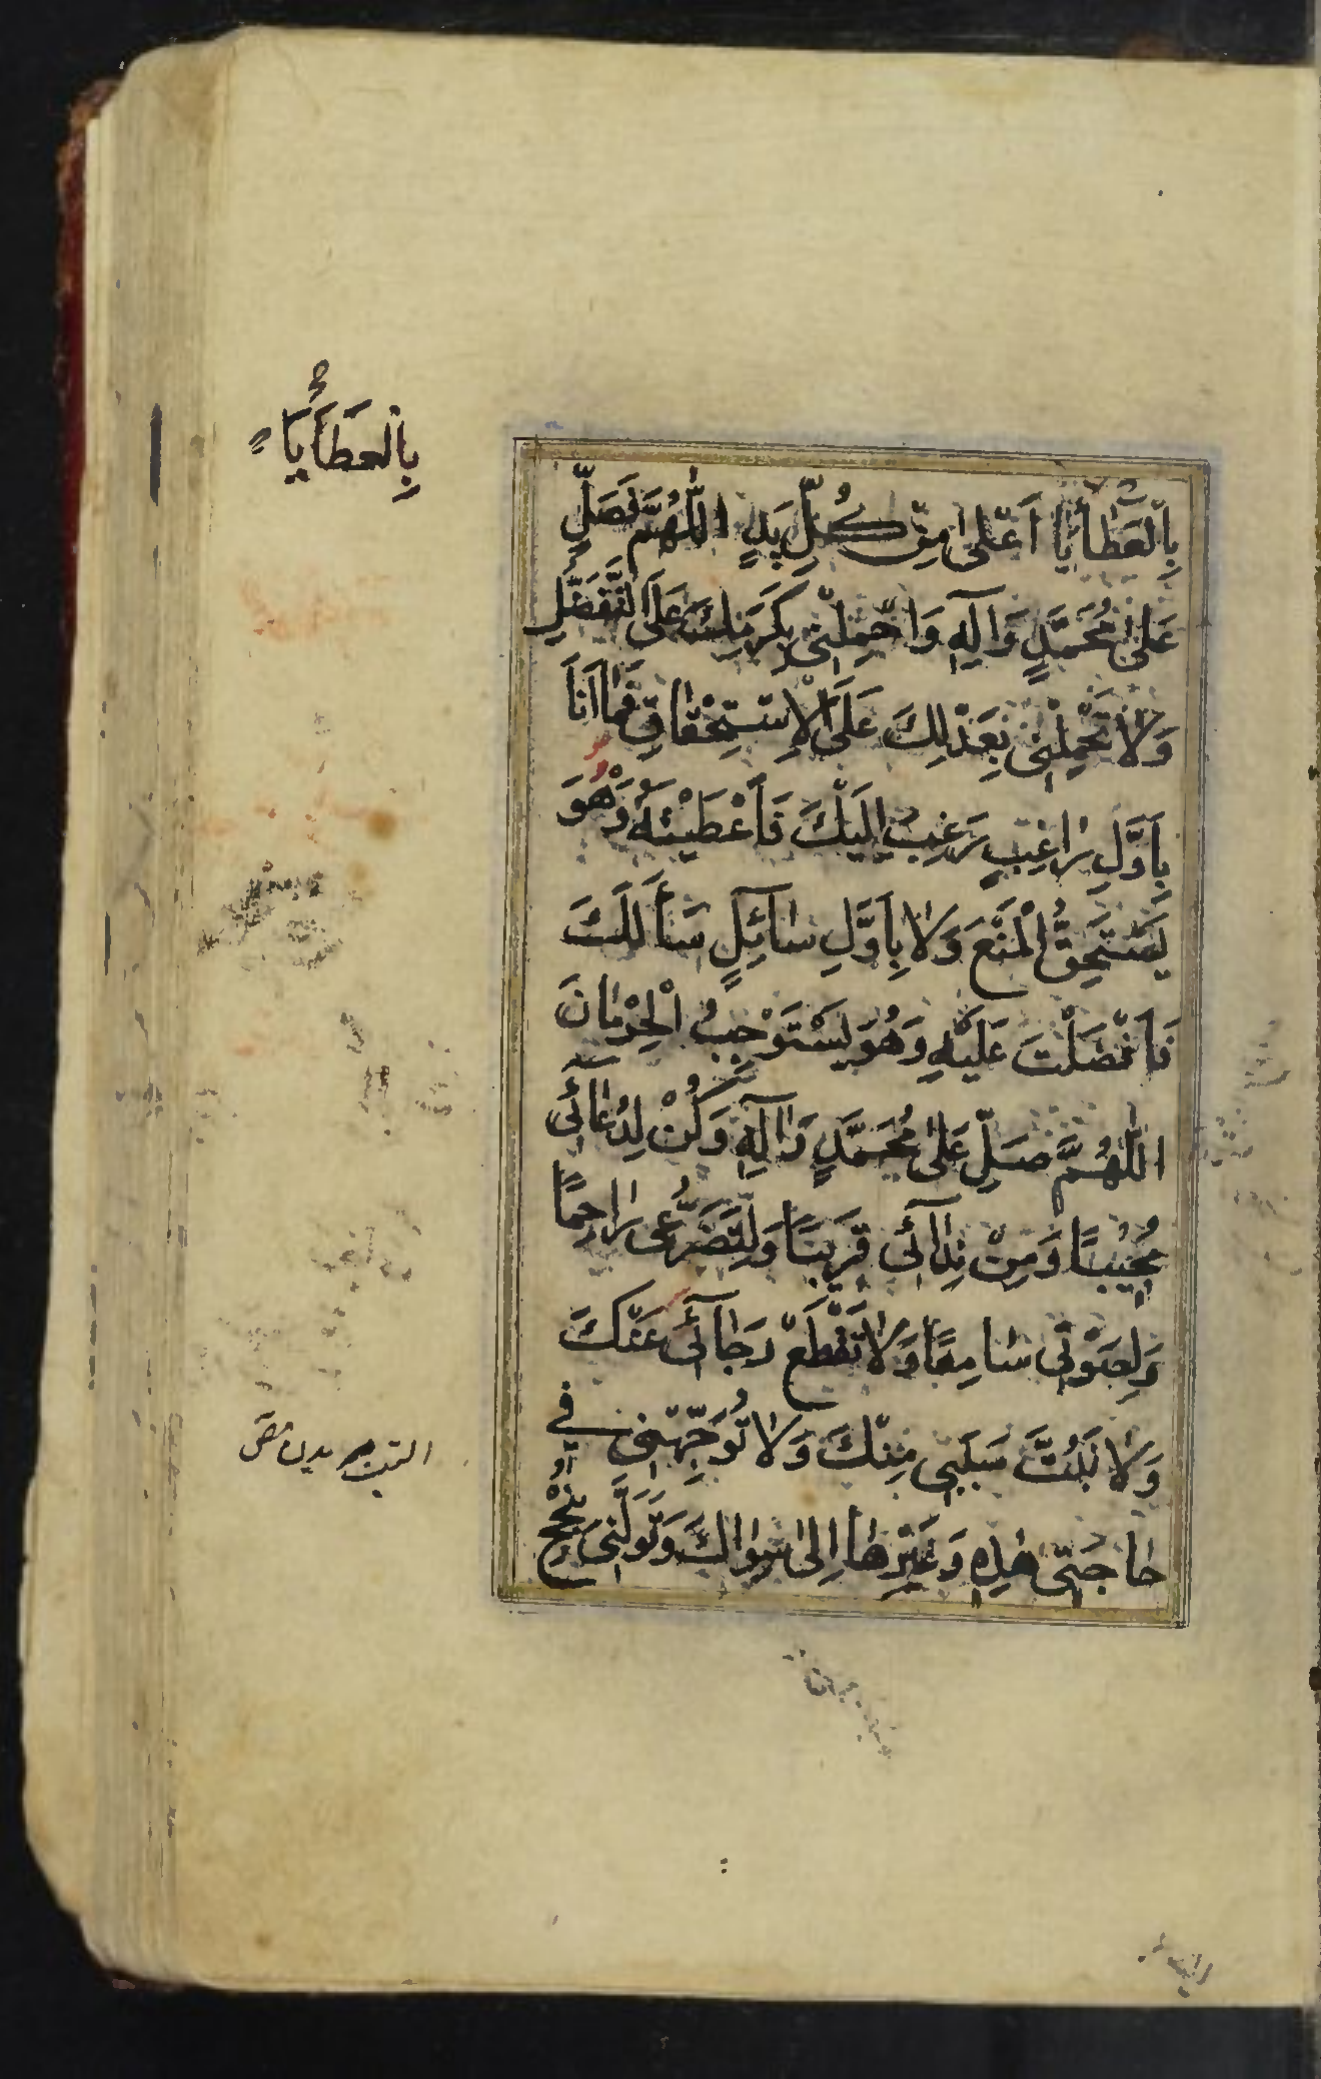 بِالْعَطَايَا
بِالْعَطَايَا أَعْلَىٰ مِنْ كُلِّ يَدٍ اللَّهُمَّ فَصَلِّ
عَلَىٰ مُحَمَّدٍ وَآلِهِ وَاحْمِلْنِي بِكَرَمِكَ عَلَى التَّفَضُّلِ
وَلَا تَحْمِلْنِي بِعَدْلِكَ عَلَى الْاِسْتِحْقَاقِ فَمَا أَنَا
بِأَوَّلِ رَاغِبٍ رَغِبَ إِلَيْكَ فَأَعْطَيْتَهُ وَهُوَ
يَسْتَحِقُّ الْمَنْعَ وَلَا بِأَوَّلِ سَائِلٍ سَأَلَكَ
فَأَفْضَلْتَ عَلَيْهِ وَهُوَ يَسْتَوْجِبُ الْحِرْمَانَ
اللَّهُمَّ صَلِّ عَلَىٰ مُحَمَّدٍ وَآلِهِ وَكُنْ لِدُعَائِي
مُجِيبًا وَمِنْ نِدَائِي قَرِيبًا وَلِتَضَرُّعِي رَاحِمًا
وَلِصَوْتِي سَامِعًا وَلَا تَقْطَعْ رَجَائِي عَنْكَ
وَلَا تَبُتَّ سَبَبِي مِنْكَ وَلَا تُوَجِّهْنِي فِي
حَاجَتِي هٰذِهِ وَغَيْرِهَا إِلَىٰ سِوَاكَ وَتَوَلَّنِي بِنُجْحِ